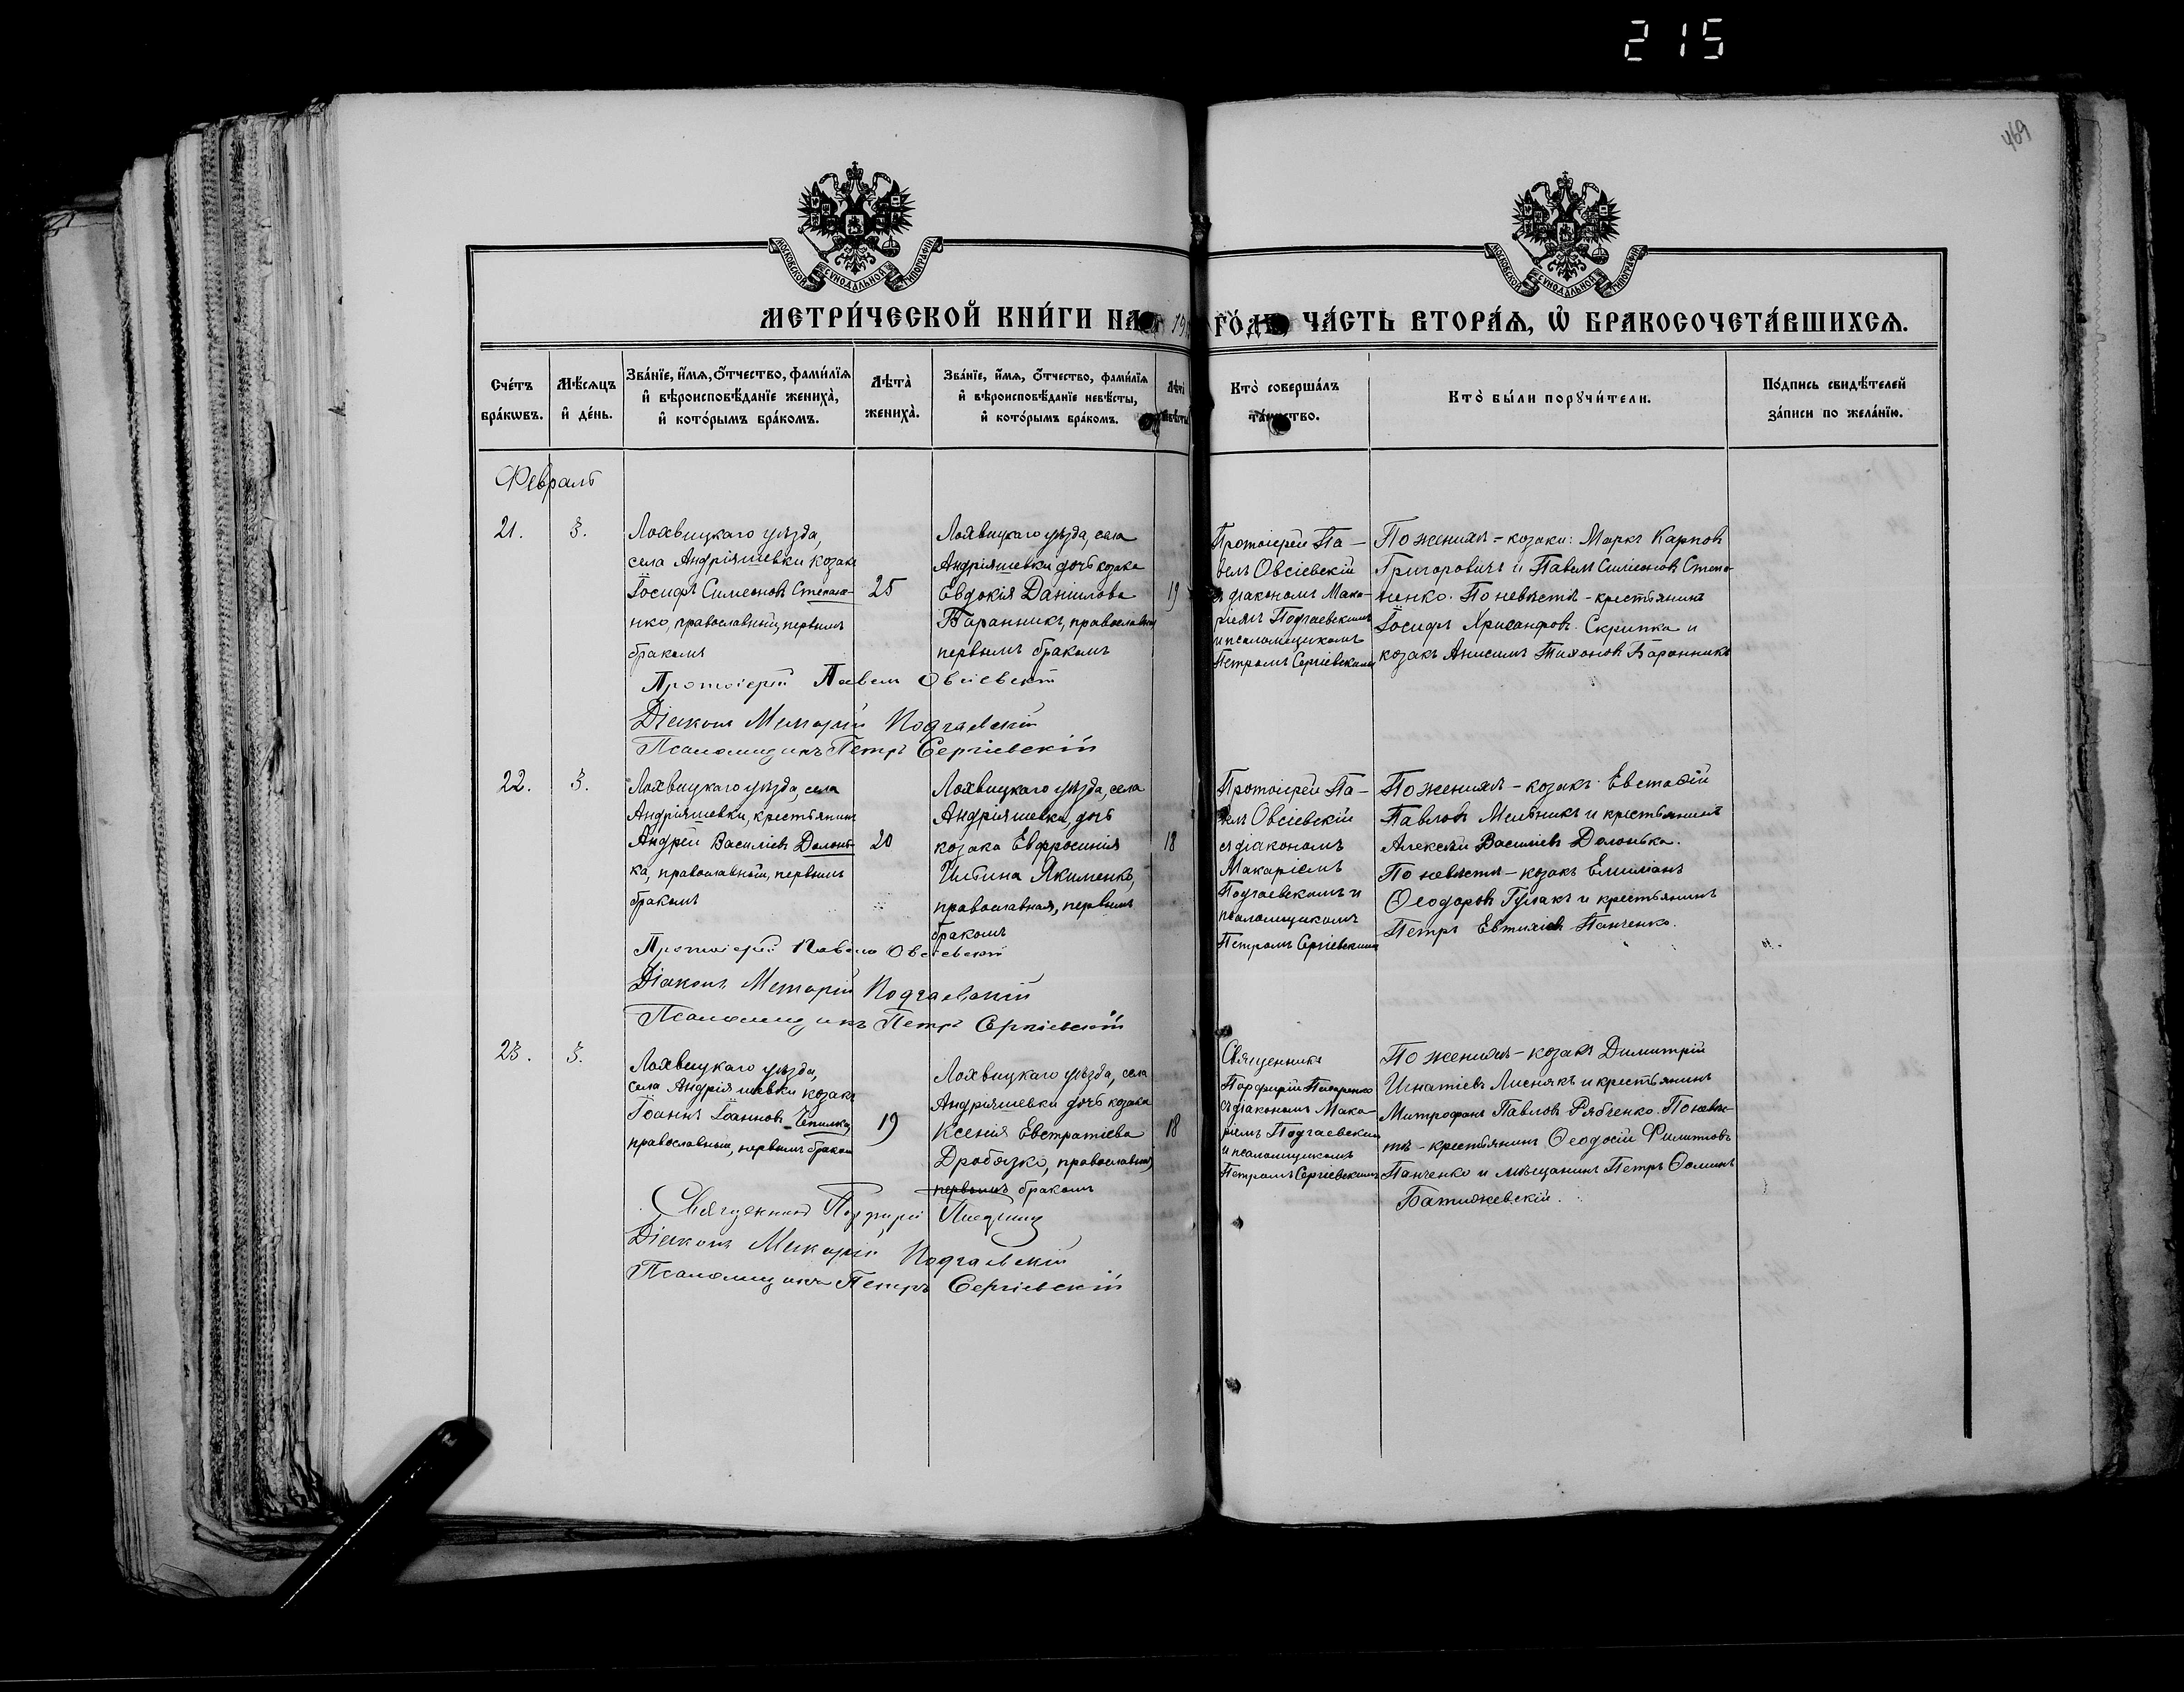 215
469
МОСКОВСКОЙ СУНОДАЛЬНОЙ ТИПОГРАФІИ
МОСКОВСКОЙ СУНОДАЛЬНОЙ ТИПОГРАФІИ
МЕТРИ́ЧЕСКОЙ КНИ́ГИ НА 19 ГО́ДЪ, ЧА́СТЬ ВТОРА́Я, Ѽ БРАКОСОЧЕТА́ВШИХСЯ.
Сче́тъ
бра́кѡвъ.
Мѣ́сяцъ
и҆ де́нь.
Зва́нїе, и҆́мя, ѻ҆́тчество, фами́лїя
и҆ вѣроисповѣ́данїе жениха̀,
и҆ кото́рымъ бра́комъ.
Лѣта̀
жениха̀.
Зва́нїе, и҆́мя, ѻ҆́тчество, фами́лїя
и҆ вѣроисповѣ́данїе невѣ́сты,
и҆ кото́рымъ бра́комъ.
Лѣта̀
невѣ́сты
Кто̀ соверша́лъ
та́инство.
Кто̀ бы́ли порꙋчи́тели.
По́дпись свидѣ́телей
за́писи по жела́нїю.
Февраль
21.
3.
Лохвицкаго уѣзда,
села Андріяшевки козакъ
Іосифъ Симеоновъ Степане-
нко, православный, первымъ
бракомъ
25
Лохвицкаго уѣзда, села
Андріяшевки дочь козака
Евдокія Даніилова
Баранникъ, православная
первымъ бракомъ
19
Протоіерей Па-
велъ Овсіевскій
съ діакономъ Мака-
ріемъ Подгаевскимъ
и псаломщикомъ
Петромъ Сергіевскимъ
По женихѣ - козаки: Маркъ Карповъ
Григоровичъ и Павелъ Симеоновъ Степа-
ненко. По невѣстѣ - крестьянинъ
Іосифъ Хрисанфовъ Скрипка и
козакъ Анисимъ Тихоновъ Баранникъ
Протоіерей Павелъ Овсіевскій
Діаконъ Макарій Подгаевскій
Псаломщикъ Петръ Сергіевскій
22.
3.
Лохвицкаго уѣзда, села
Андріяшевки, крестьянинъ
Андрей Василіевъ Долонь-
ка, православный, первымъ
бракомъ
20
Лохвицкаго уѣзда, села
Андріяшевки, дочь
козака Евфросинія
Якименко,
православная, первымъ
бракомъ
18
Протоіерей Па-
велъ Овсіевскій
съ діакономъ
Макаріемъ
Подгаевскимъ и
псаломщикомъ
Петромъ Сергіевскимъ
По женихѣ - козакъ Евстафій
Павловъ Мельникъ и крестьянинъ
Алексѣй Василіевъ Долонька.
По невѣстѣ - козакъ Емиліанъ
Ѳеодоровъ Гулакъ и крестьянинъ
Петръ Евтихіевъ Панченко.
Протоіерей Павелъ Овсіевскій
Діаконъ Макарій Подгаевскій
Псаломщикъ Петръ Сергіевскій
23.
3.
Лохвицкаго уѣзда,
села Андріяшевки козакъ
Іоаннъ Іоанновъ Чепилко,
православный, первымъ бракомъ
19
Лохвицкаго уѣзда, села
Андріяшевки дочь козака
Ксенія Евстратіева
Дробязко, православная,
первымъ бракомъ
18
Священникъ
Порфирій
съ діакономъ Мака-
ріемъ Подгаевскимъ
и псаломщикомъ
Петромъ Сергіевскимъ
По женихѣ - козакъ Димитрій
Игнатіевъ Лиснякъ и крестьянинъ
Митрофанъ Павловъ Рябченко. По невѣс-
тѣ - крестьянинъ Ѳеодосій Филиповъ
Панченко и мѣщанинъ Петръ Ѳоминъ
Батижевскій.
Священникъ Порфирій
Діаконъ Макарій Подгаевскій
Псаломщикъ Петръ Сергіевскій